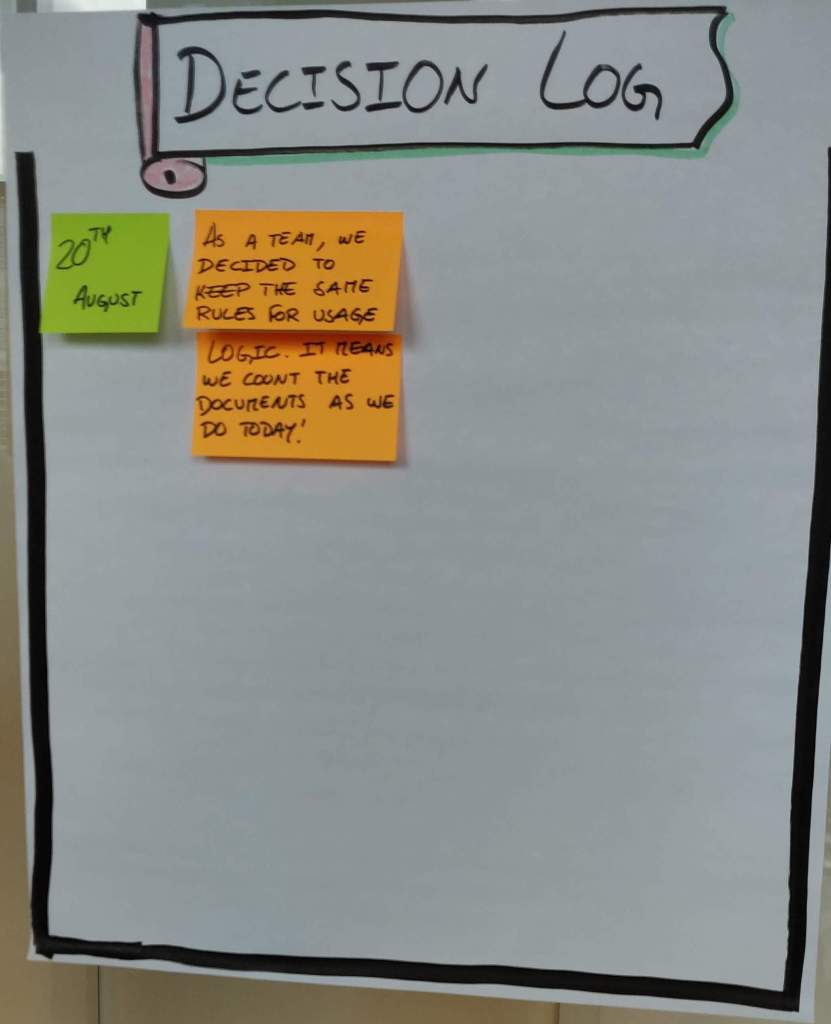 DECISION LOG
20TH
AUGUST
AS A TEAM, WE
DECIDED TO
KEEP THE SAME
RULES FOR USAGE
LOGIC. IT MEANS
WE COUNT THE
DOCUMENTS AS WE
DO TODAY!